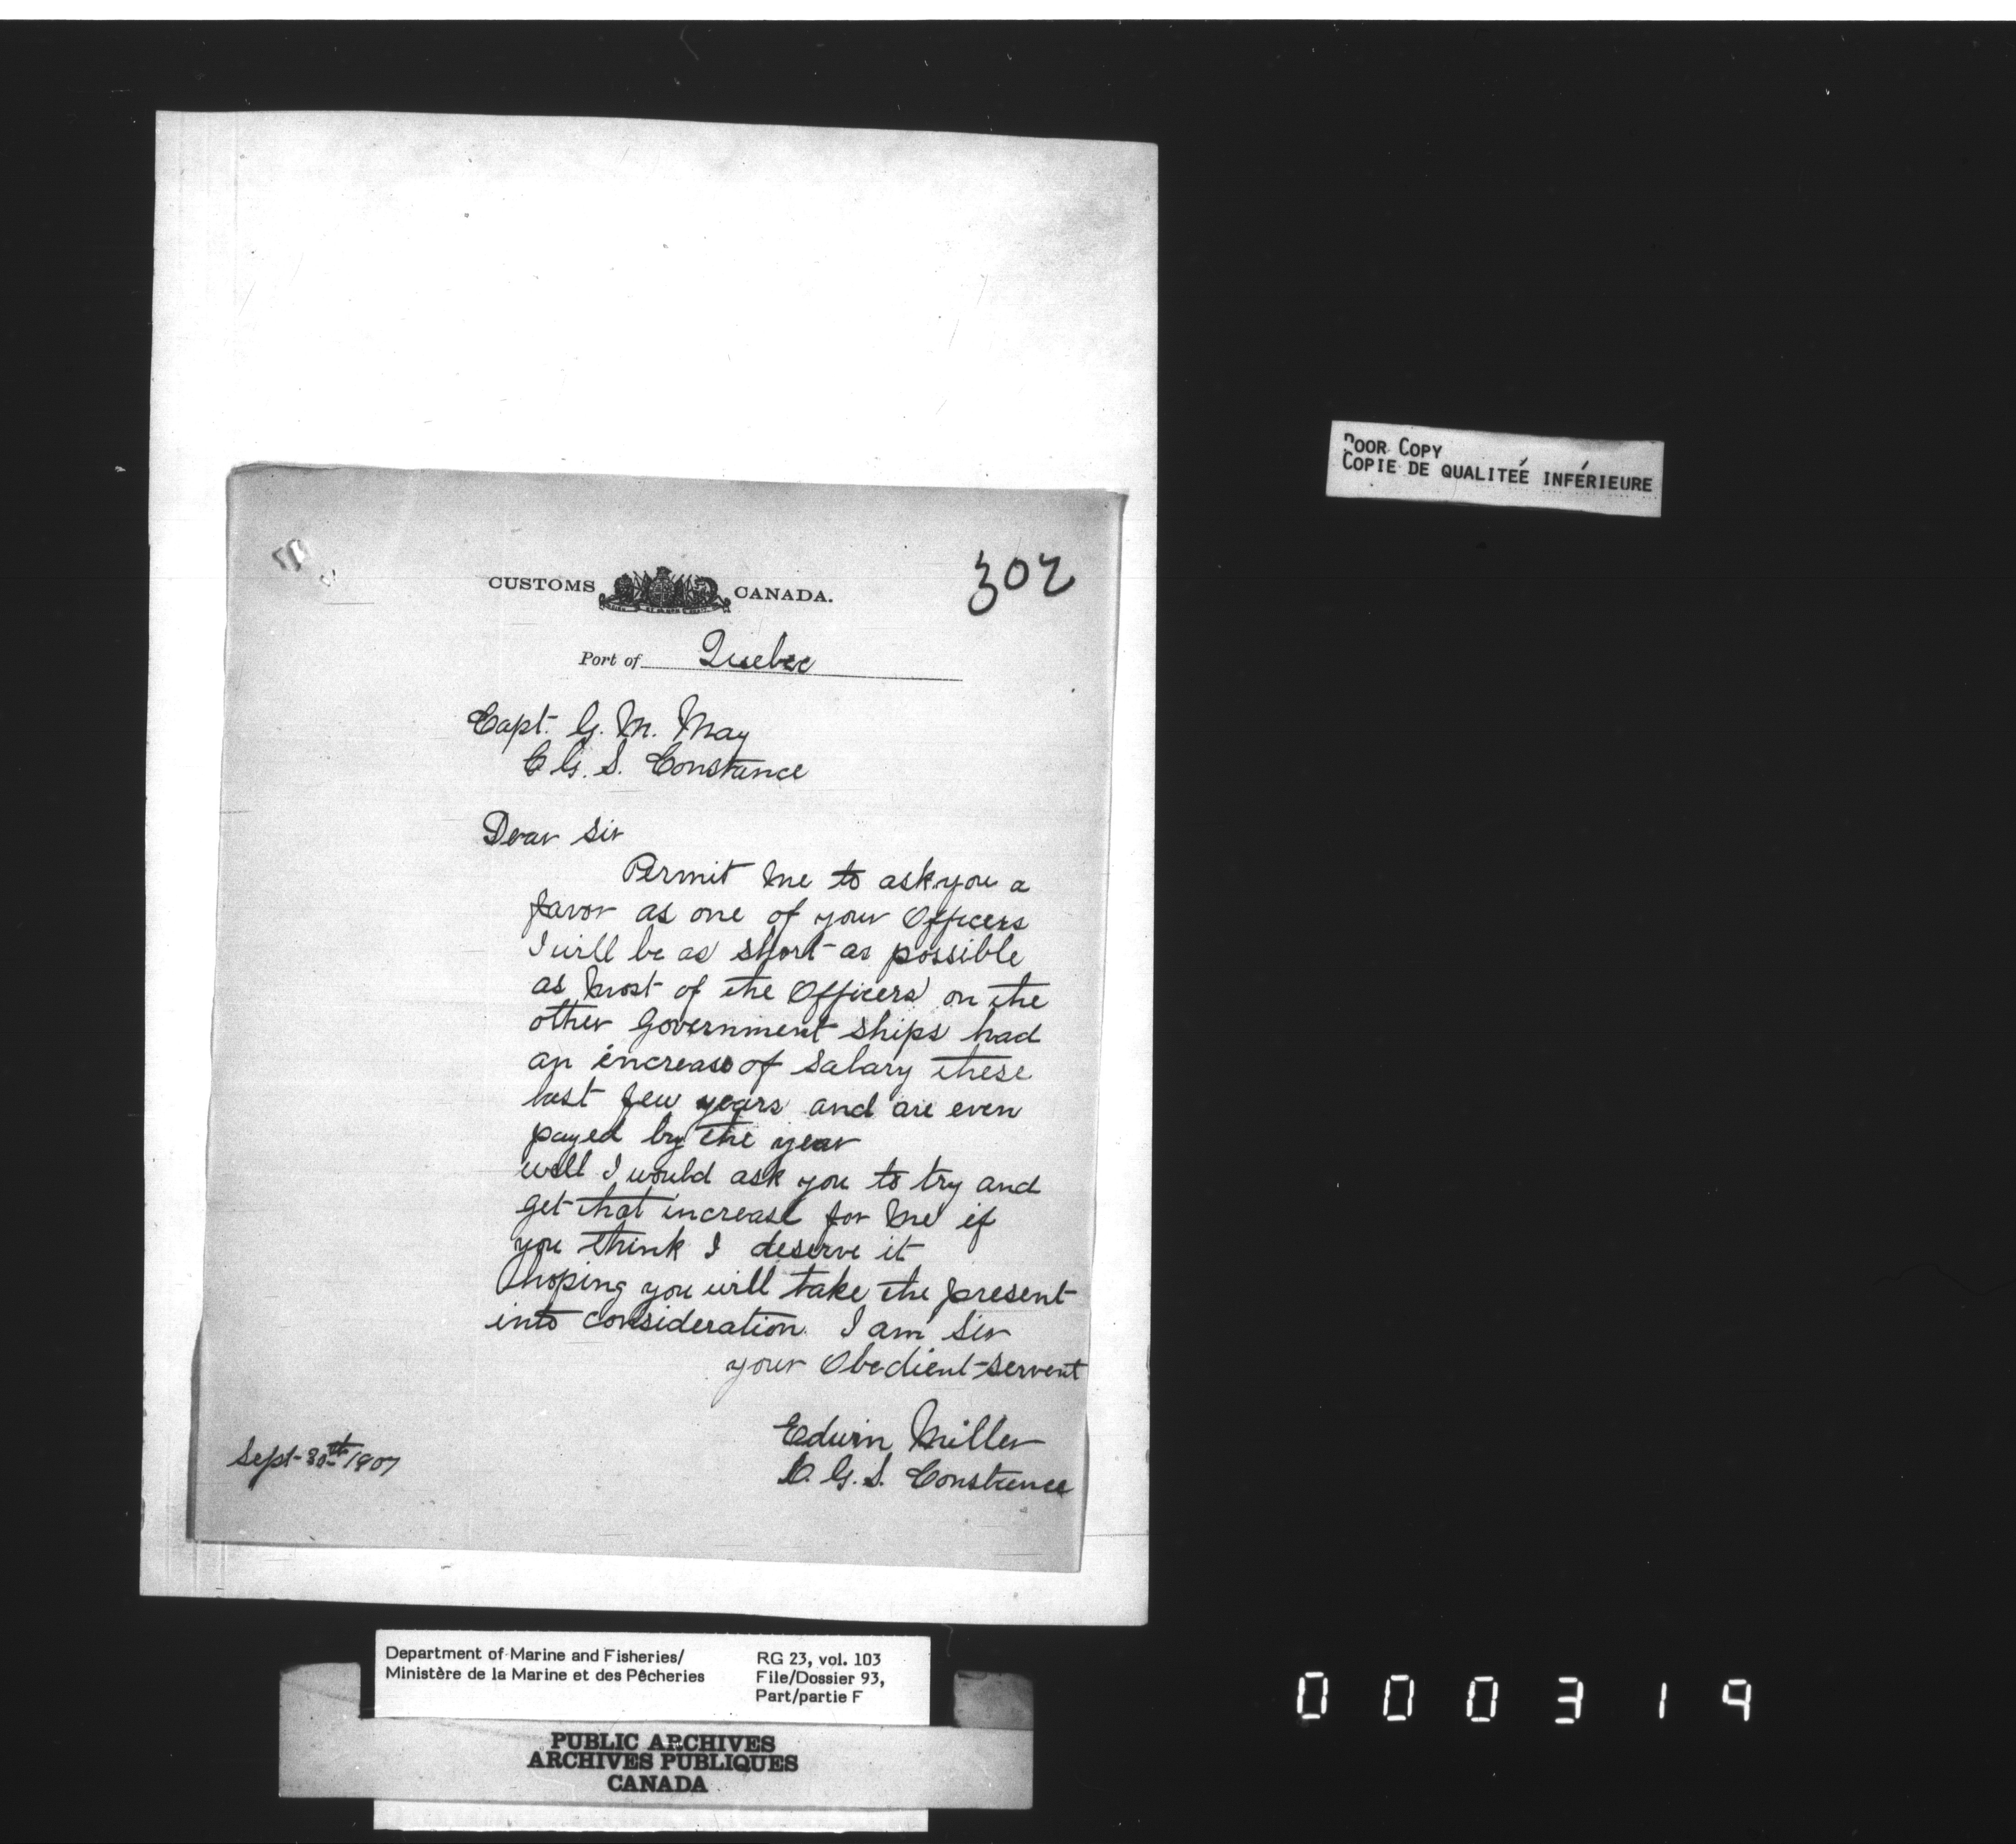 POOR COPY
COPIE DE QUALITEÉ INFÉRIEURE
302
CUSTOMS CANADA.
Port of Quebec
Capt. G. M. May
C. G. S. Constance
Dear Sir
Permit me to ask you a
favor as one of your Officers
I will be as short as possible
as most of the Officers on the
other Government ships had
an increase of Salary these
last few years and are even
payed by the year
well I would ask you to try and
get that increase for me if
you think I deserve it
hoping you will take the present
into consideration. I am Sir
your Obedient servent
Edwin Miller
C. G. S. Constance
Sept 30th 1907
Department of Marine and Fisheries/
Ministère de la Marine et des Pêcheries
RG 23, vol. 103
File/Dossier 93,
Part/partie F
PUBLIC ARCHIVES
ARCHIVES PUBLIQUES
CANADA
000319